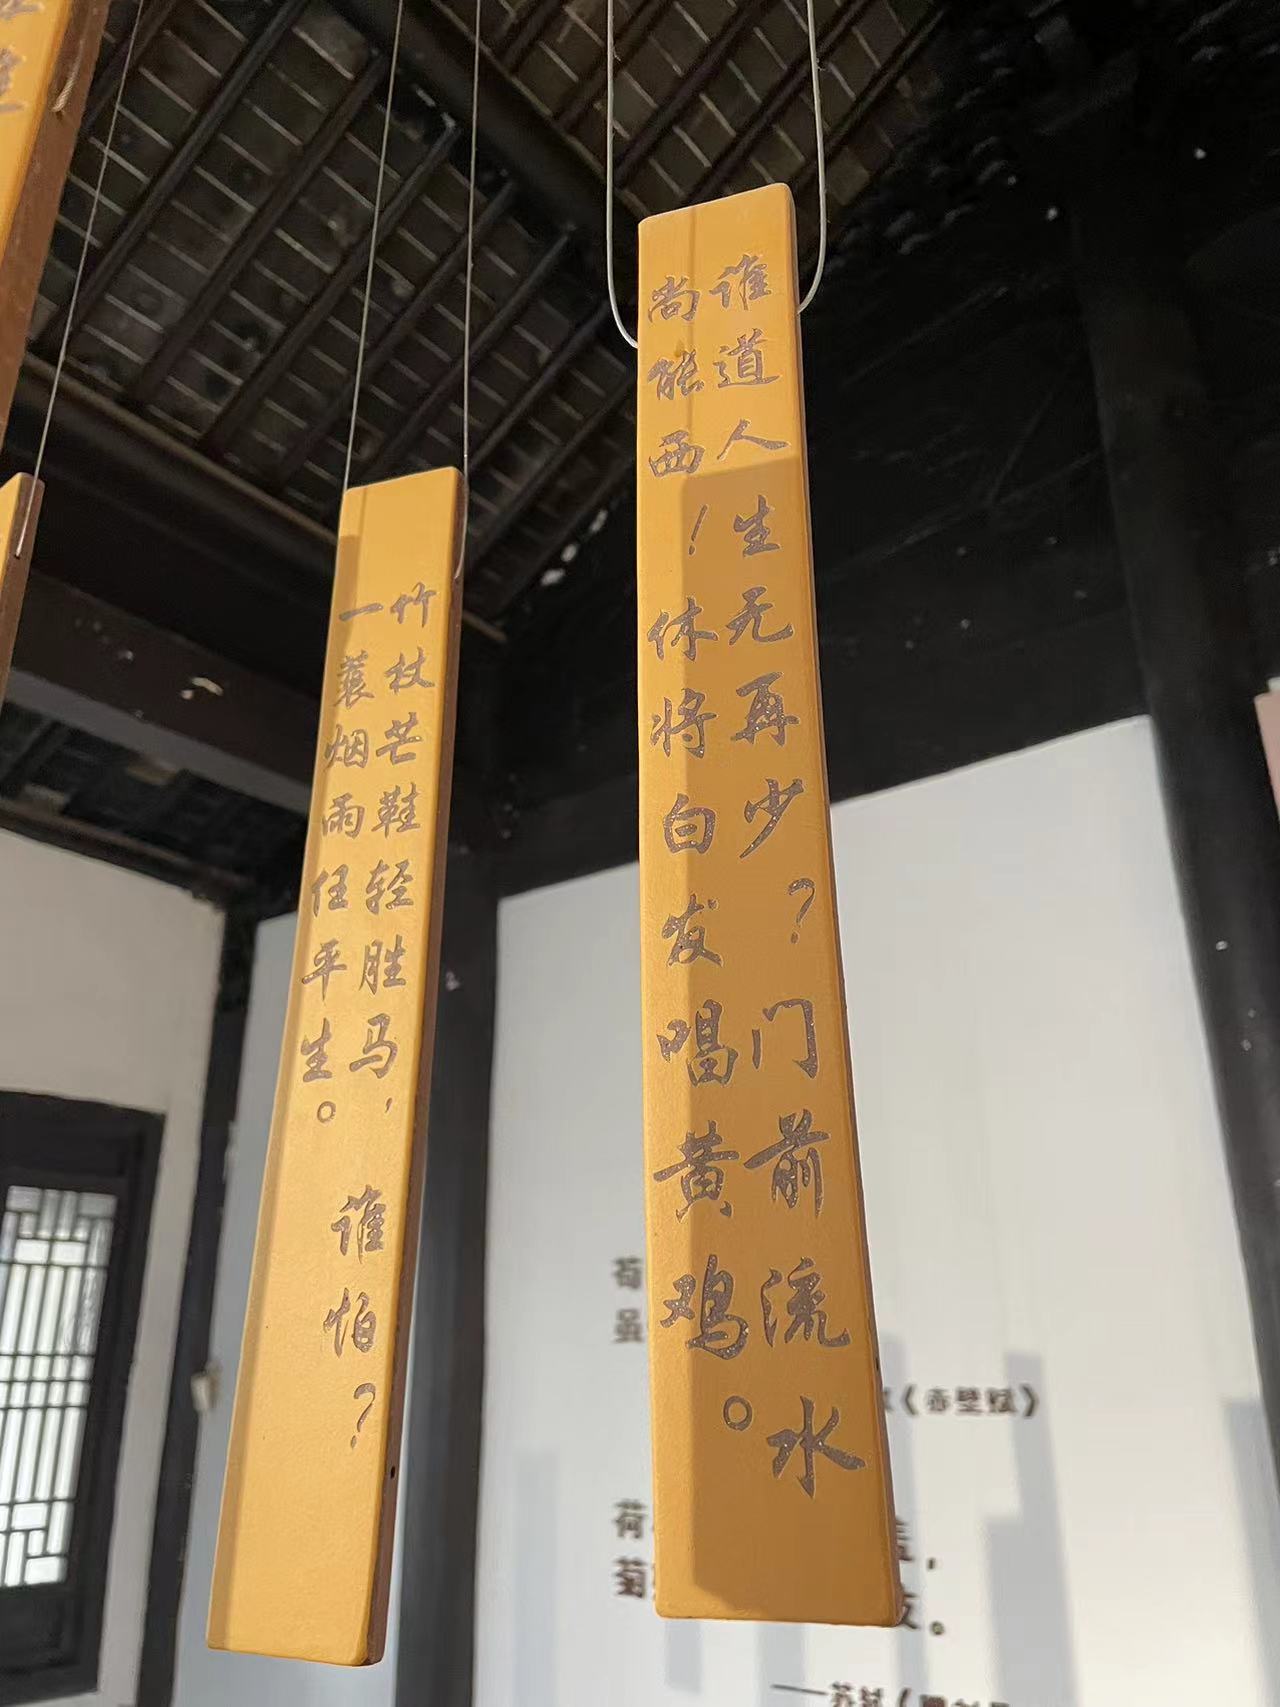 谁道人生无再少？门前流水
尚能西！休将白发唱黄鸡。
竹杖芒鞋轻胜马，谁怕？
一蓑烟雨任平生。
苟
虽
《赤壁赋》
荷
盖，
菊
枝。
——苏轼《赠刘